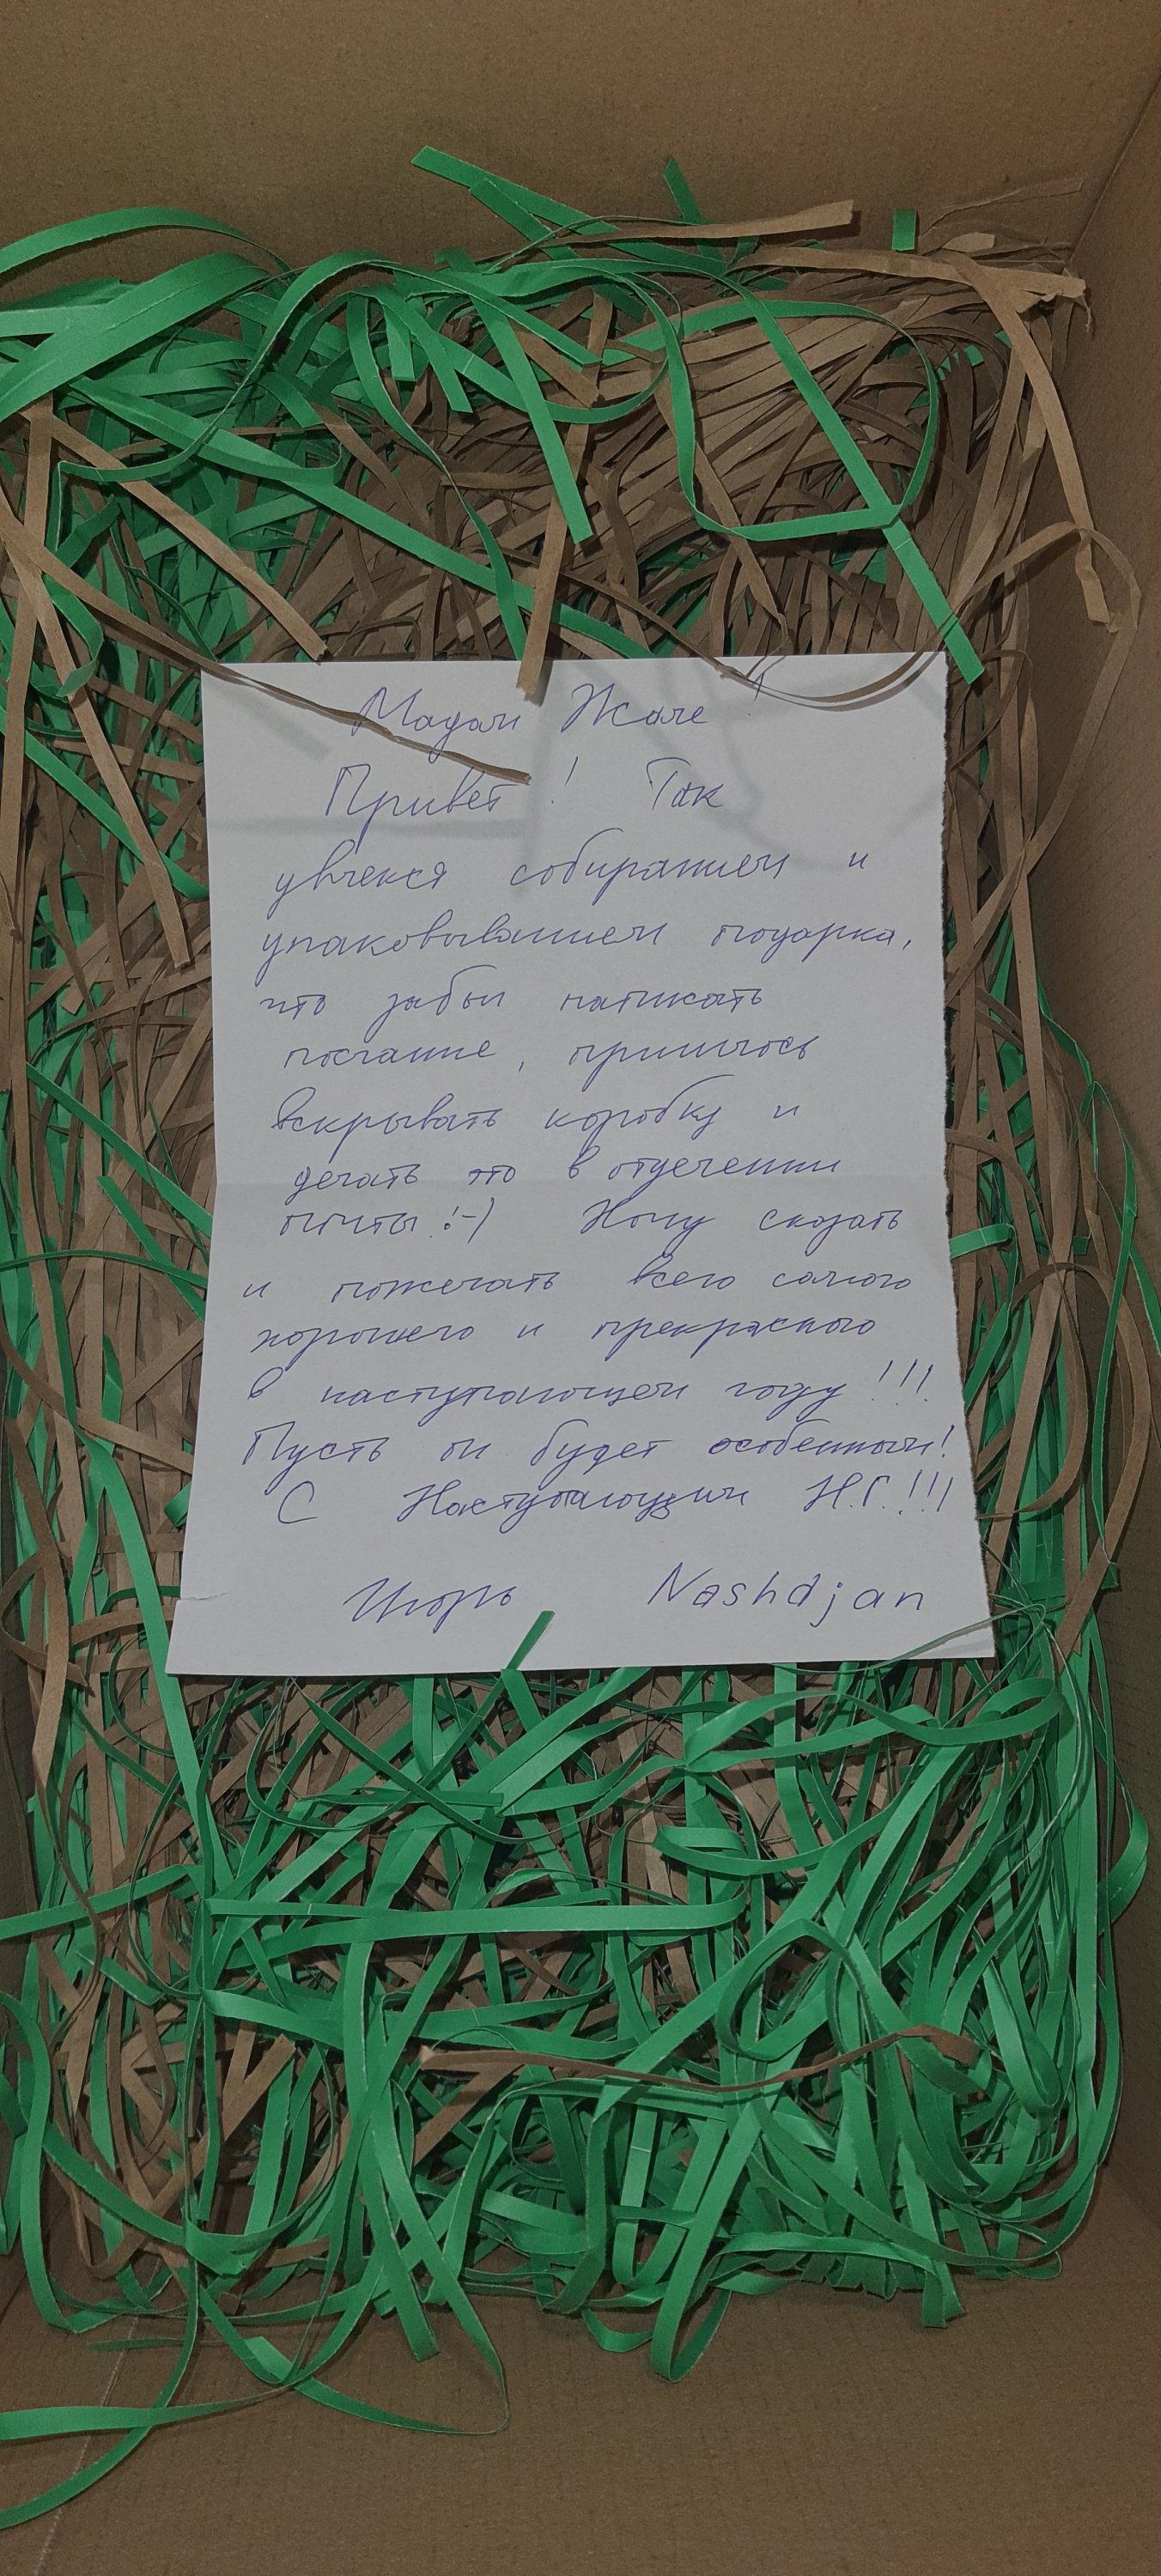 Мадам Жале
Привет! Так
увлекся собиранием и
упаковыванием подарка,
что забыл написать
послание, пришлось
вскрывать коробку и
делать это в отделении
почты! :-) Хочу сказать
и пожелать всего самого
хорошего и прекрасного
в наступающем году!!!
Пусть он будет особенным!
С Наступающим Н.Г.!!!
Игорь Nashdjan